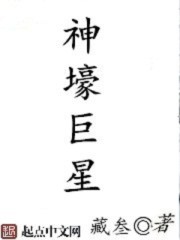 神壕巨星
起点中文网
藏叁◎著